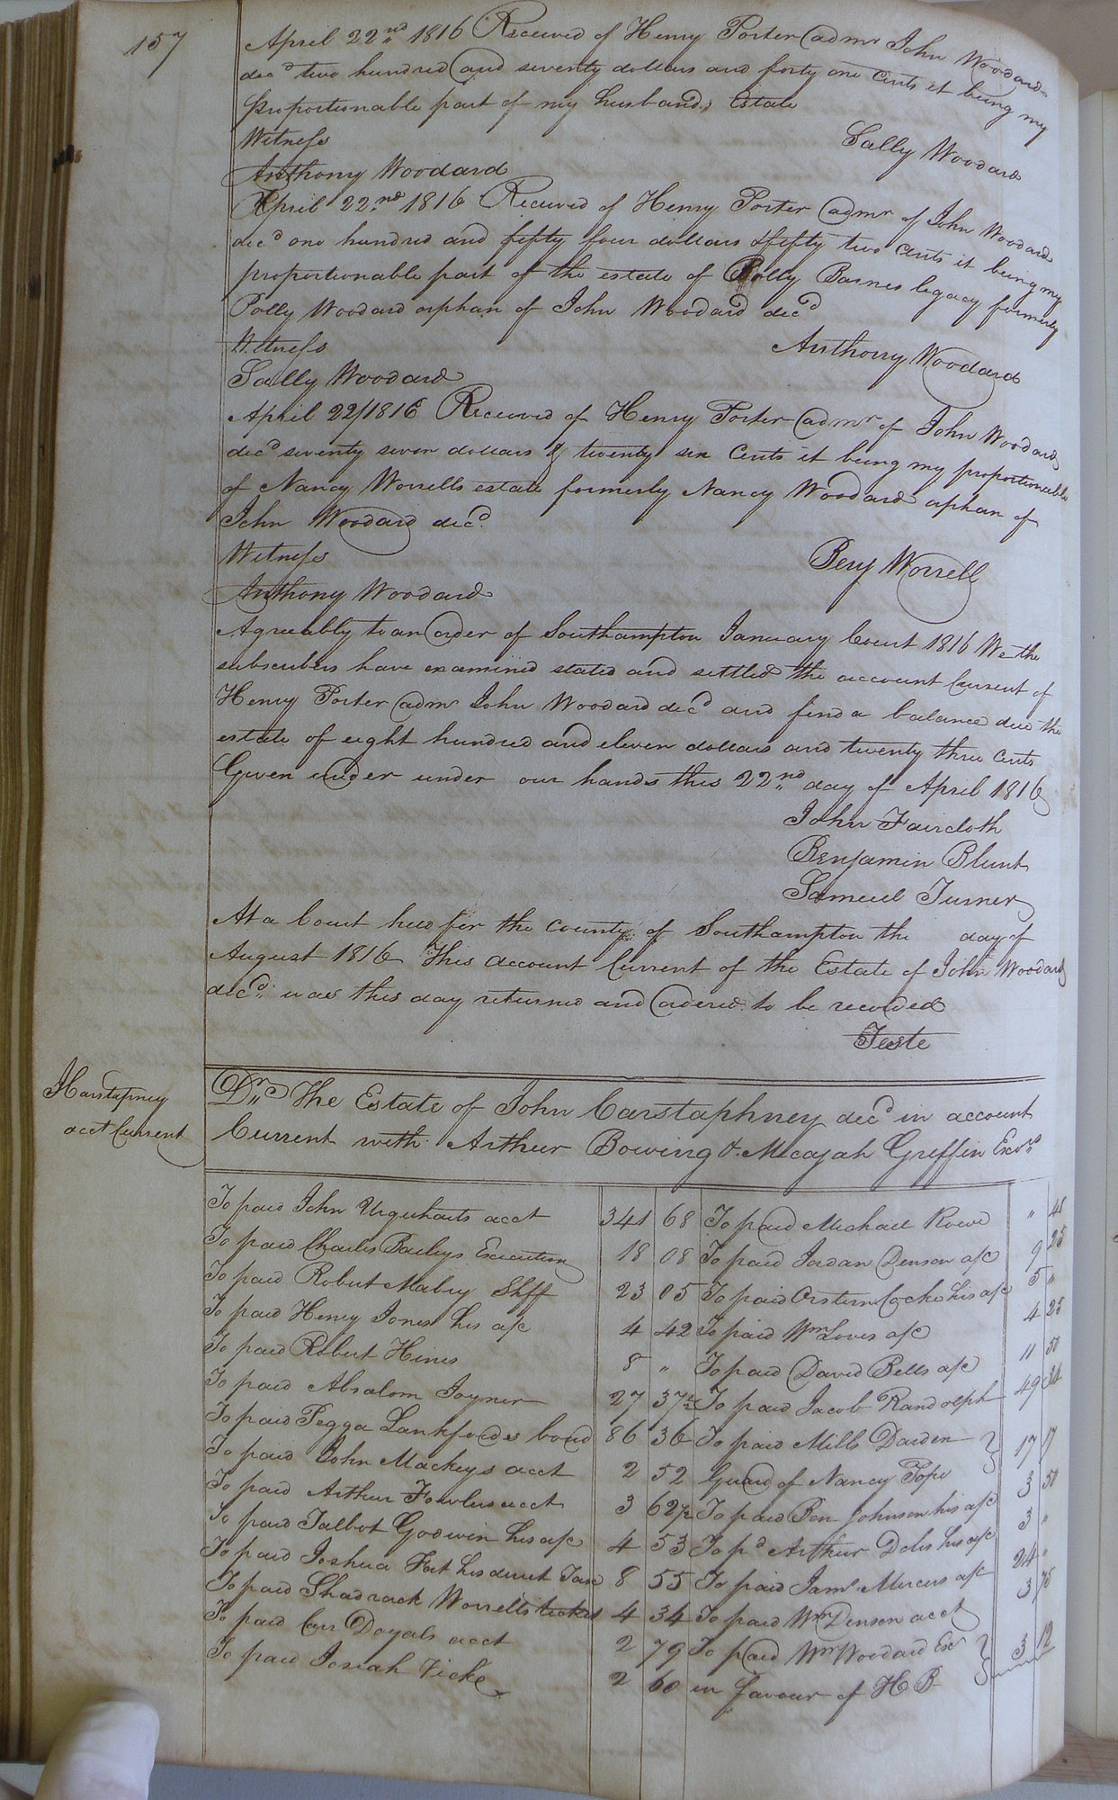 157
April 22nd 1816 Received of Henry Porter admr John Woodard
decd two hundred and seventy dollars and forty one Cents it being my
proportionable part of my husbands Estate
Witness
Sally Woodard
Anthony Woodard
April 22nd 1816 Received of Henry Porter admr of John Woodard
decd one hundred and fifty four dollars & fifty two Cents it being my
proportionable part of the estate of Polly Barnes legacy formerly
Polly Woodard orphan of John Woodard decd
Witness
Anthony Woodard
Sally Woodard
April 22/1816 Received of Henry Porter admr of John Woodard
decd seventy seven dollars & twenty six Cents it being my proportionable
of Nancy Worrells estate formerly Nancy Woodard orphan of
John Woodard decd
Witness
Benj Worrell
Anthony Woodard
Agreeably to an order of Southampton January Court 1816 We the
subscribers have examined stated and settled the account Current of
Henry Porter admr John Woodard decd and find a balance due the
estate of eight hundred and eleven dollars and twenty three Cents
Given under under our hands this 22nd day of April 1816
John Faircloth
Benjamin Blunt
Samuel Turner
At a Court held for the county of Southampton the day of
August 1816 This account Current of the Estate of John Woodard
decd was this day returned and ordered to be recorded
Teste
Carstaphney
acct Current
Dr The Estate of John Carstaphney decd in account
Current with Arthur Bowing & Micajah Griffin Exors
To paid John Urquharts acct 341 68 To paid Michael Rowe " 48
To paid Charles Baileys Execution 18 08 To paid Jordan Denson a/c 9 25
To paid Robert Mabry Shff 23 05 To paid Orstern Cocke his a/c 5 "
To paid Henry Jones his a/c 4 42 To paid Wm Loves a/c 4 25
To paid Robert Hines 8 " To paid David Bells a/c 11 50
To paid Absalom Joyner 27 37½ To paid Jacob Randolph 49 34
To paid Pegga Lankfords bond 86 36 To paid Mills Darden
To paid John Mackeys acct 2 52 Guard of Nancy Pope 17 17
To paid Arthur Fowlers acct 3 62½ To paid Ben Johnson his a/c 3 50
To paid Talbot Godwin his a/c 4 53 To pd Arthur Doles his a/c 3 "
To paid Joshua Fort his direct Tax 8 55 To paid Jams Mercers a/c 24 "
To paid Shadrack Worrells ticket 4 34 To paid Wm Denson acct 3 75
To paid Carr Doyals acct 2 79 To paid Wm Woodard Exr
To paid Josiah Vicke 2 60 in favour of H B 3 12